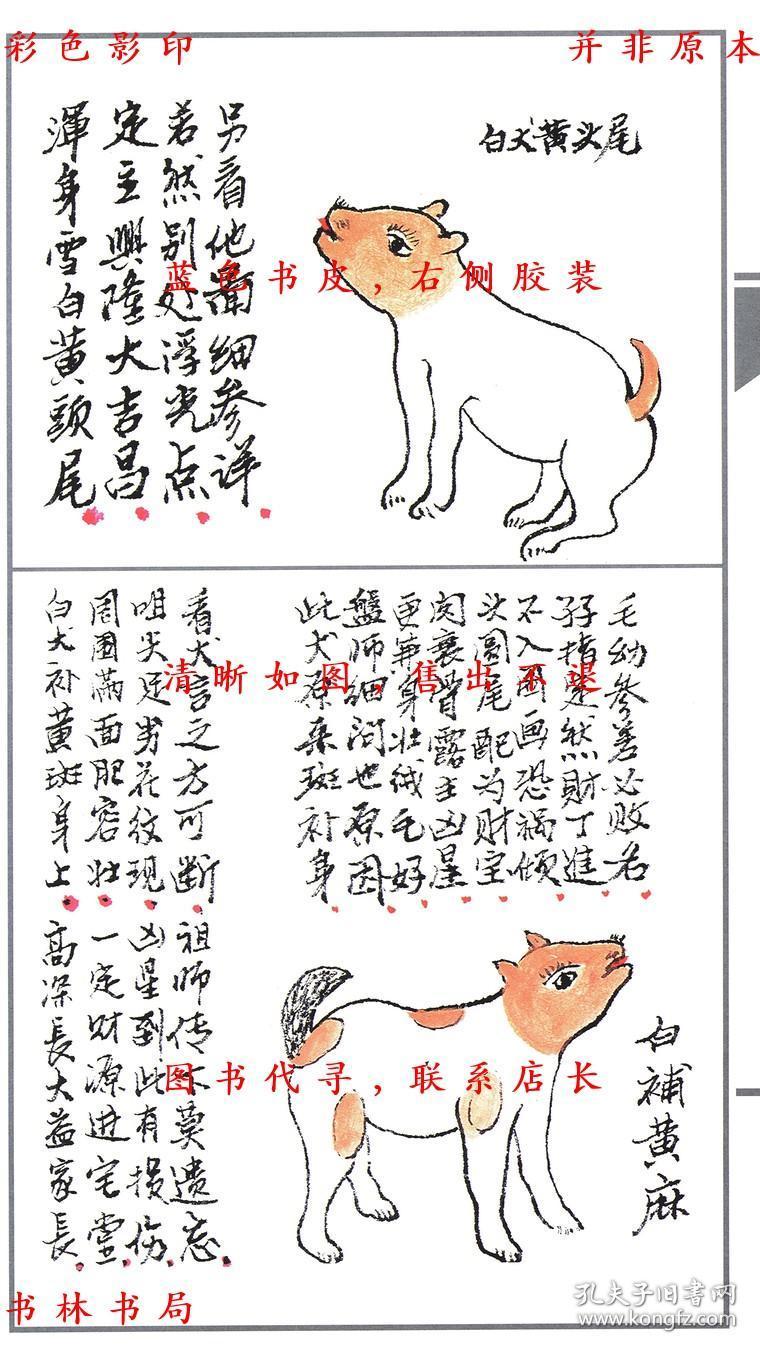 彩色影印
并非原本
白犬黄头尾
渾身雪白黄頭尾
定主興隆大吉昌
若然别处浮光点
另看他圖细参详
蓝色书皮，右侧胶装
白犬补黄斑身上
高深長大益家長
周围满面肥容壮
一定财源进宅堂
咀尖足劣花纹现
凶星到此有損伤
看犬言之方可断
祖师传莫遗忘
此犬原来斑补身
盤师细问也原因
更兼身壮绒毛好
骨露主凶星
头圆尾配为财宝
不入图画恐祸倾
孖指楚然财丁進
毛幼参差必败名
清晰如图，售出不退
白補黄麻
图书代寻，联系店长
书林书局
孔夫子旧书网
www.kongfz.com